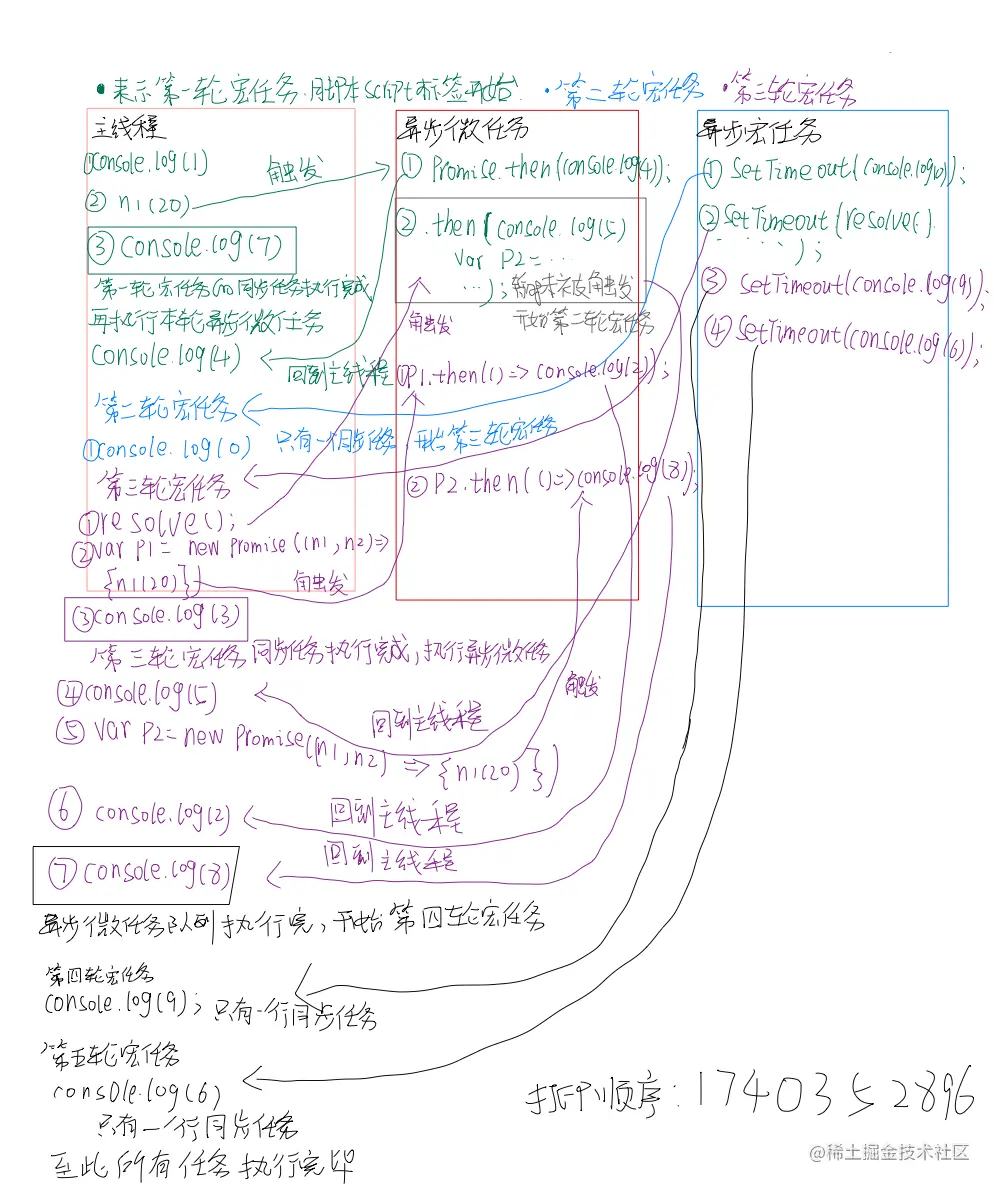 • 表示第一轮宏任务.用脚本script标签开始. •第二轮宏任务 •第三轮宏任务
主线程
①console.log(1)
触发
② n1(20)
③ console.log(7)
第一轮宏任务的同步任务执行完成
再执行本轮异步微任务
console.log(4)
回到主线程
第二轮宏任务
①console.log(0) 只有一个同步任务 开始第三轮宏任务
第三轮宏任务
①resolve();
②var P1= new Promise((n1,n2)=>
{n1(20)})
触发
③console.log(3)
第三轮宏任务同步任务执行完成,执行异步微任务
④console.log(5)
回到主线程
⑤ var P2=new Promise((n1,n2) => {n1(20)})
触发
⑥ console.log(2)
回到主线程
⑦console.log(8)
回到主线程
异步微任务队列执行完,开始第四轮宏任务
第四轮宏任务
console.log(9); 只有一行同步任务
第五轮宏任务
console.log(6)
只有一行同步任务
至此所有任务执行完毕
异步微任务
① Promise.then(console.log(4));
② .then(console.log(5)
var P2=...
...); 暂时未被触发
开始第二轮宏任务
触发
①P1.then(()=> console.log(2));
② P2.then(()=>console.log(8));
异步宏任务
① SetTimeout(console.log(0));
②SetTimeout(resolve().
. . . . );
③ setTimeout(console.log(9));
④ SetTimeout(console.log(6));
打印顺序:1740352896
@稀土掘金技术社区